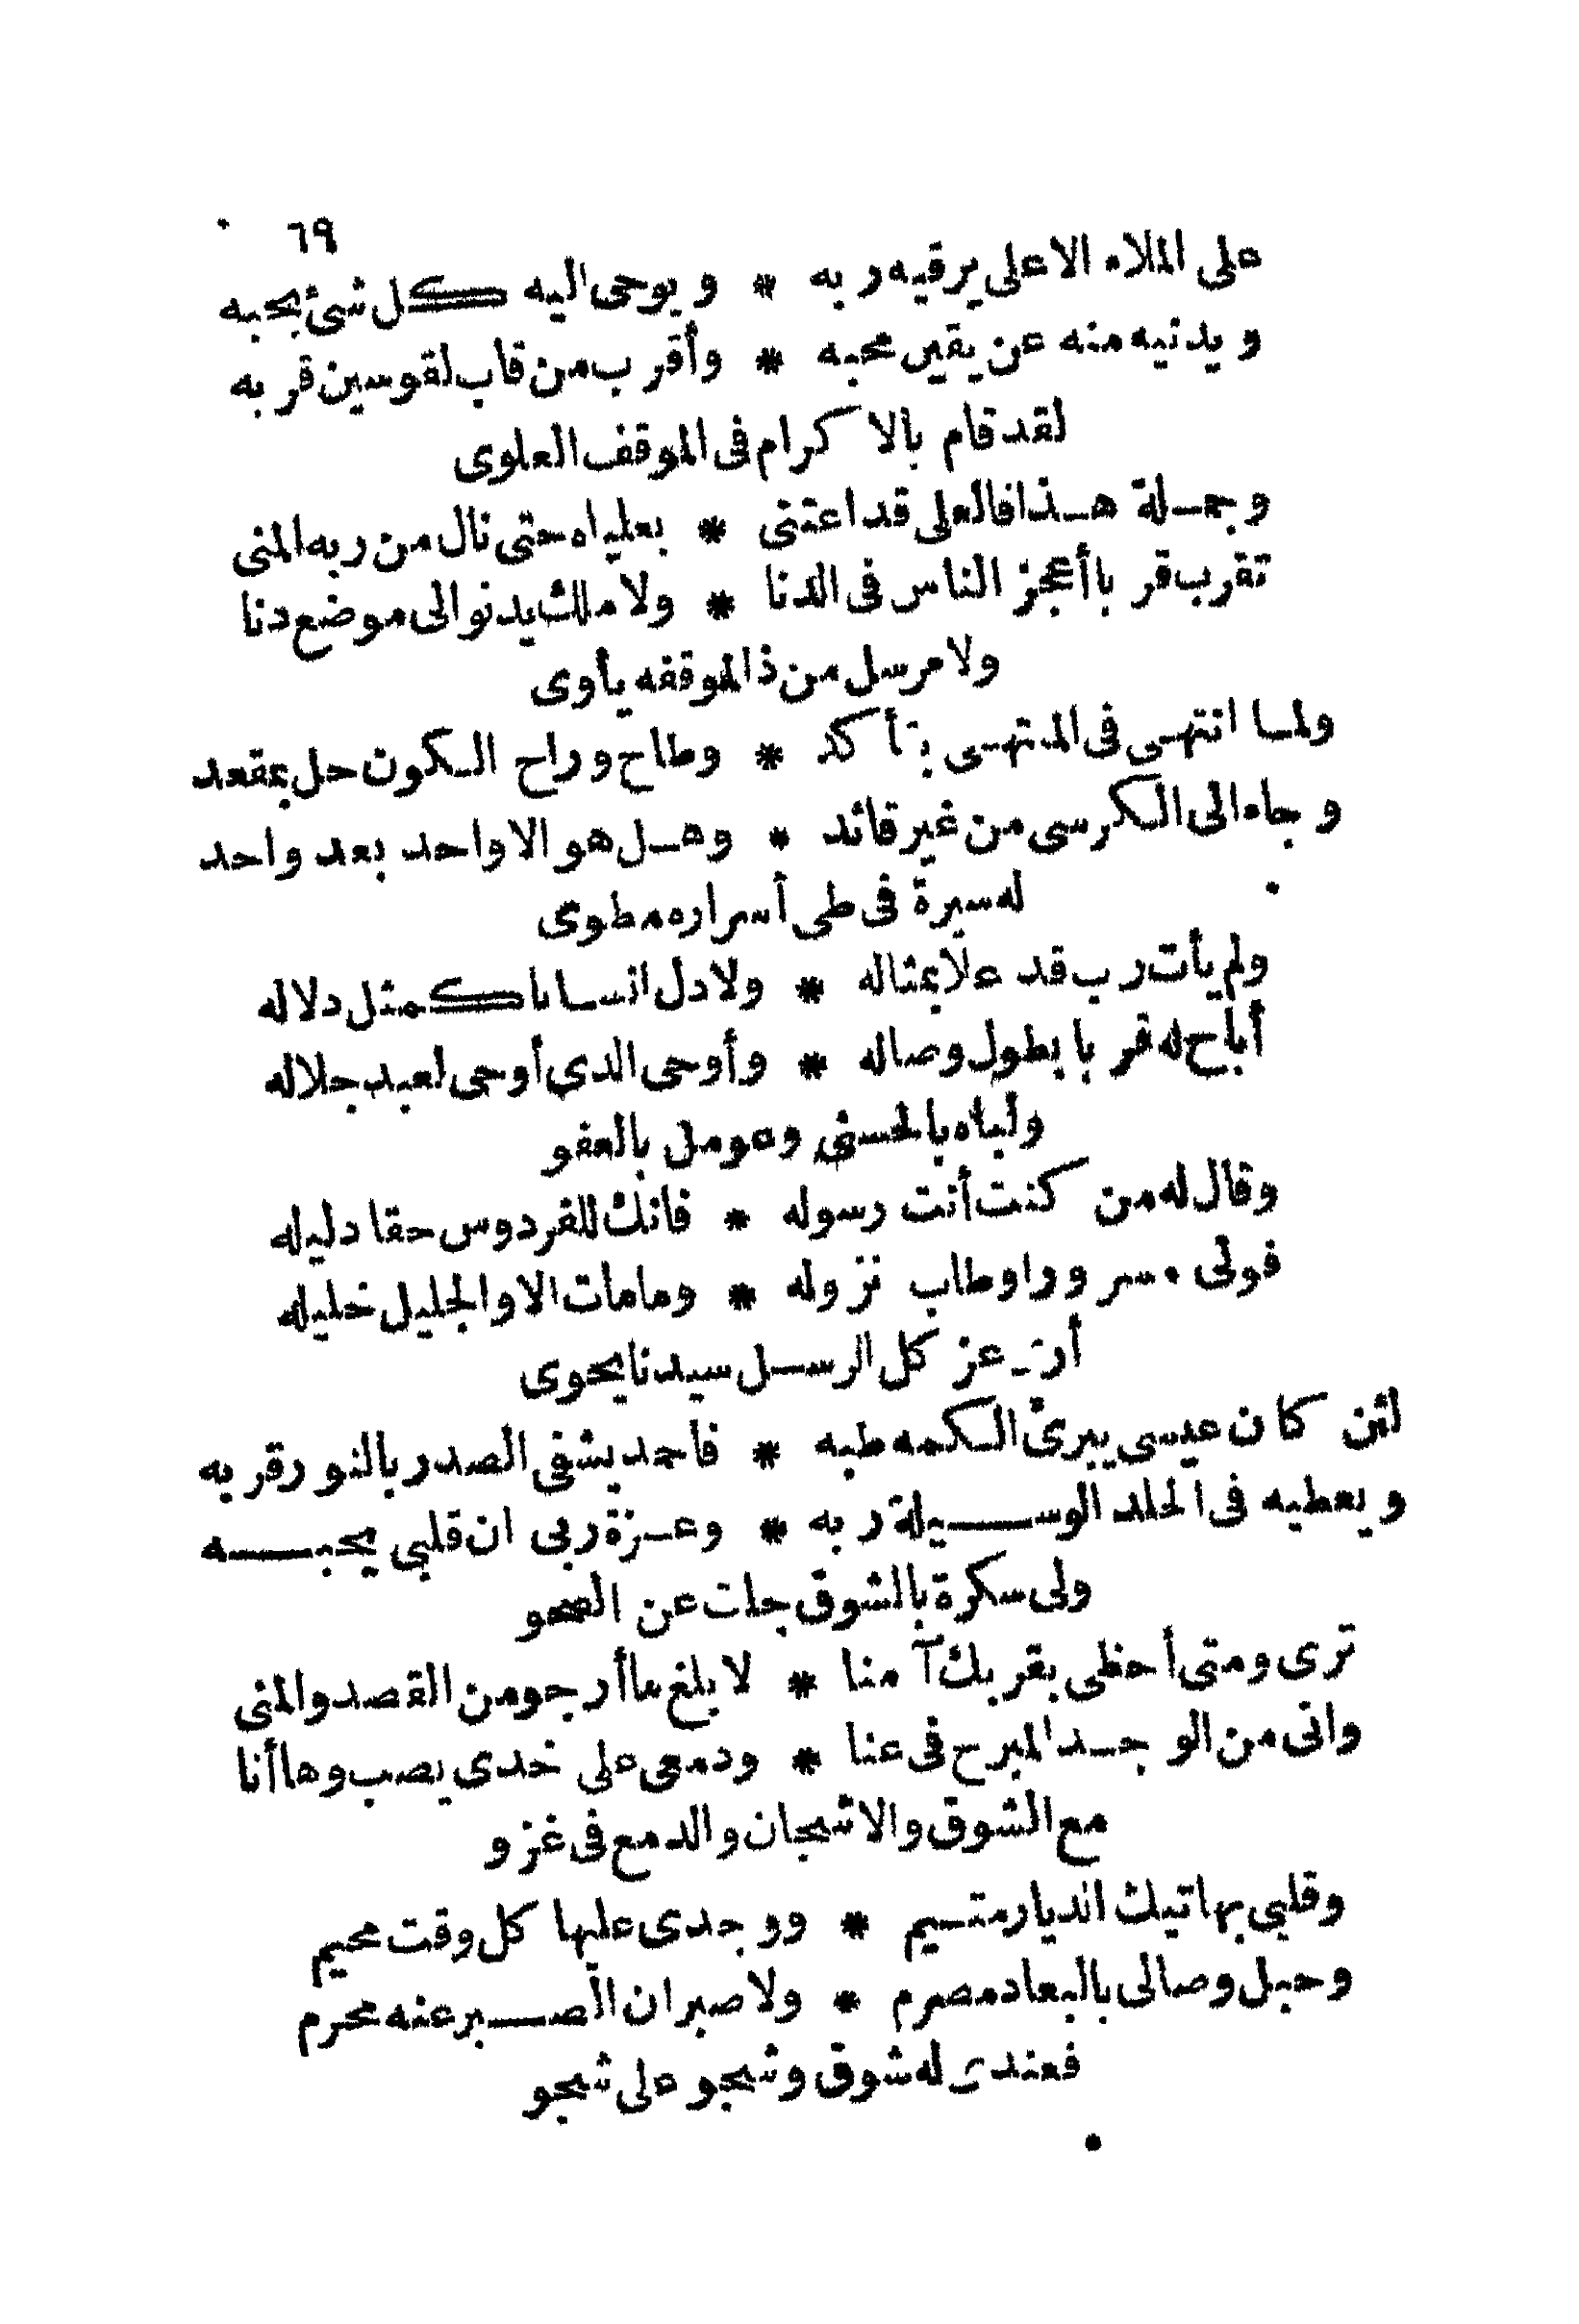 ٦٩
على الملاء الاعلى يرقيه ربه * ويوحى اليه كل شئ يحبه
ويدنيه منه عن يقين محبه * وأقرب من قاب لقوسين قربه
لقد قام بالاكرام فى الموقف العلوى
وجملة هذا فالعلى قد اعتنى * بعلياه حتى نال من ربه المنى
تقرب قربا أعجز الناس فى الدنا * ولا ملك يدنو الى موضع دنا
ولا مرسل من ذا لموقفه يأوى
ولما انتهى فى المنتهى بتأكد * وطاح وراح الكون حل بمقعد
وجاء الى الكرسى من غير قائد * وهل هو الا واحد بعد واحد
له سيرة فى طى أسراره مطوى
ولم يأت رب قد علا بمثاله * ولا دل انسانا كمثل دلاله
أباح له قربا بطول وصاله * وأوحى الذي أوحى لعبد جلاله
ولباه بالحسنى وعومل بالعفو
وقال له من كنت أنت رسوله * فانك للفردوس حقا دليله
فولى مسرورا وطاب نزوله * ومامات الا والجليل خليله
أرى عز كل الرسل سيدنا يحوى
لئن كان عيسى يبرئ الكمه طبه * فاحمد يشفى الصدر بالنور قربه
ويعطيه فى الخلد الوسيلة ربه * وعزة ربى ان قلبي يحبه
ولى سكرة بالشوق جلت عن الصحو
ترى ومتى أحظى بقربك آمنا * لا بلغ ما أرجو من القصد والمنى
وانى من الوجد المبرح فى عنا * ودمعى على خدى يصب وها أنا
مع الشوق والاشجان والدمع فى غزو
وقلبي بهاتيك الديار متيم * ووجدى عليها كل وقت محيم
وحبل وصالى بالبعاد مصرم * ولا صبر ان الصبر عنه محرم
فعندى له شوق وشجو على شجو